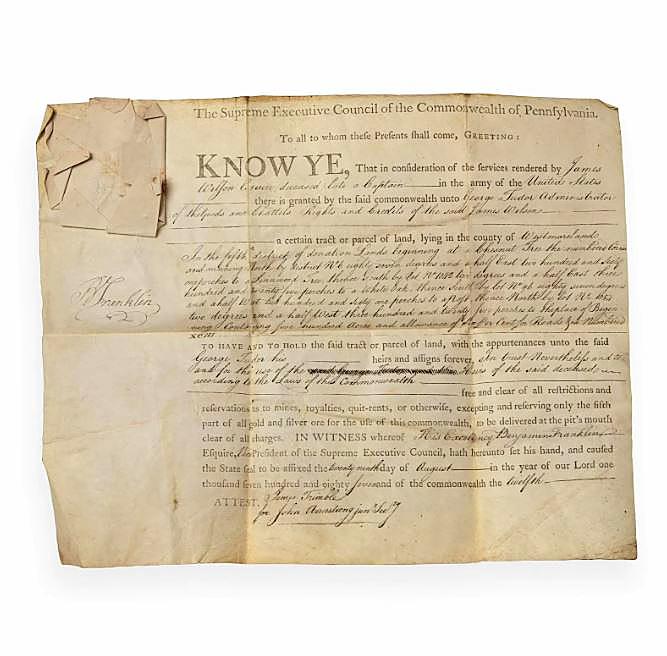 The Supreme Executive Council of the Commonwealth of Pennsylvania.
To all to whom these Presents shall come, Greeting:
KNOW YE, That in consideration of the services rendered by James
Wilson Esquire deceased late a Captain in the army of the United States
there is granted by the said commonwealth unto George Tudor Administrator
of the Goods and Chattels Rights and Credits of the said James Wilson
a certain tract or parcel of land, lying in the county of Westmoreland
In the fifth district of donation Lands beginning at a Chesnut Tree the
and running North by District No 6 eighty seven degrees and a half East two hundred and Sixty
perches to a Tree, thence South by Lot No two degrees and a half East three
hundred and twenty five perches to a White Oak, thence South by Lot No 96 eighty seven degrees
and a half West two hundred and Sixty one perches to a Post, thence North by Lot No
two degrees and a half West three hundred and twenty five perches to the place of Begin
ning Containing five hundred Acres and allowance of Six P Cent for Roads &c Numbered
XCIII
B Franklin
TO HAVE AND TO HOLD the said tract or parcel of land, with the appurtenances unto the said
George Tudor his heirs and assigns forever, In trust Nevertheless and to
and for the use of the Heirs of the said deceased
according to the Laws of this Commonwealth free and clear of all restrictions and
reservations as to mines, royalties, quit-rents, or otherwise, excepting and reserving only the fifth
part of all gold and silver ore for the use of this commonwealth, to be delivered at the pit's mouth
clear of all charges. IN WITNESS whereof His Excellency Benjamin Franklin
Esquire, President of the Supreme Executive Council, hath hereunto set his hand, and caused
the State seal to be affixed the twenty ninth day of August in the year of our Lord one
thousand seven hundred and eighty seven and of the commonwealth the twelfth
ATTEST. James Trimble
for John Armstrong junr Secry